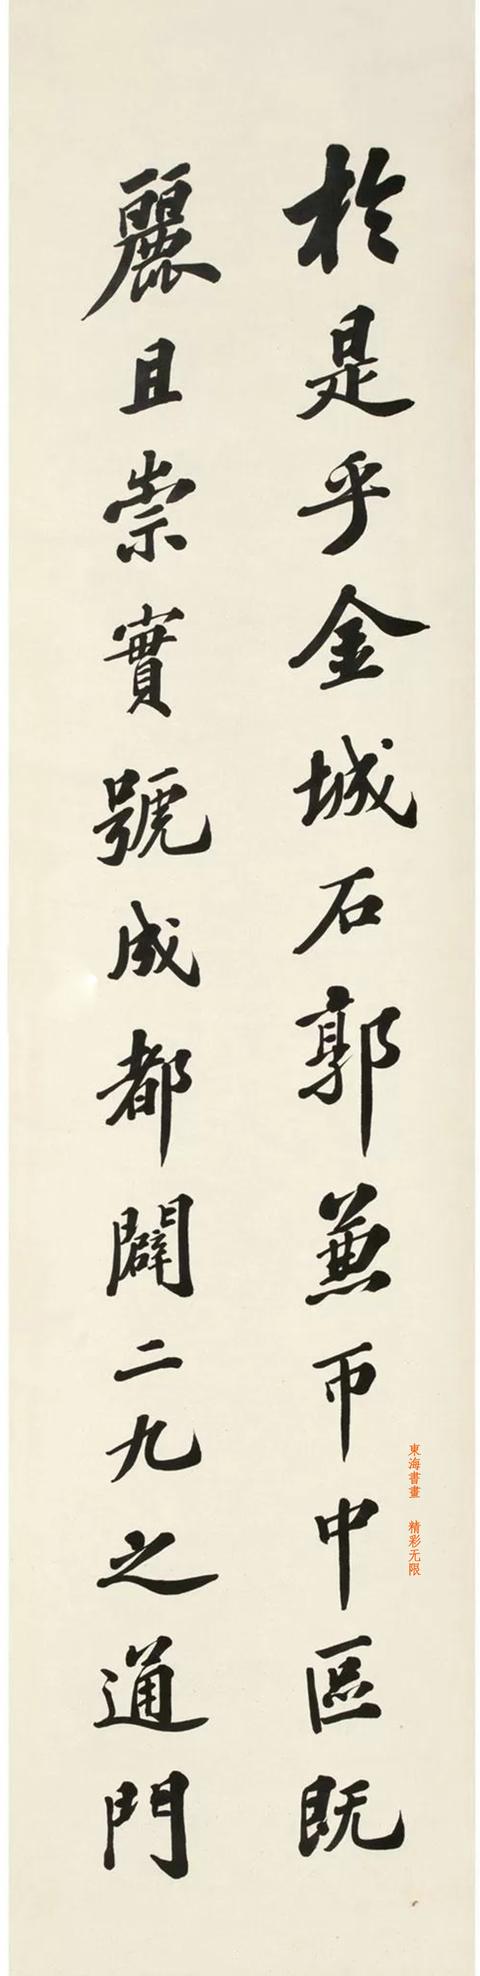 於是乎金城石郭兼帀中區既
麗且崇實號成都闢二九之通門
東海書畫 精彩无限